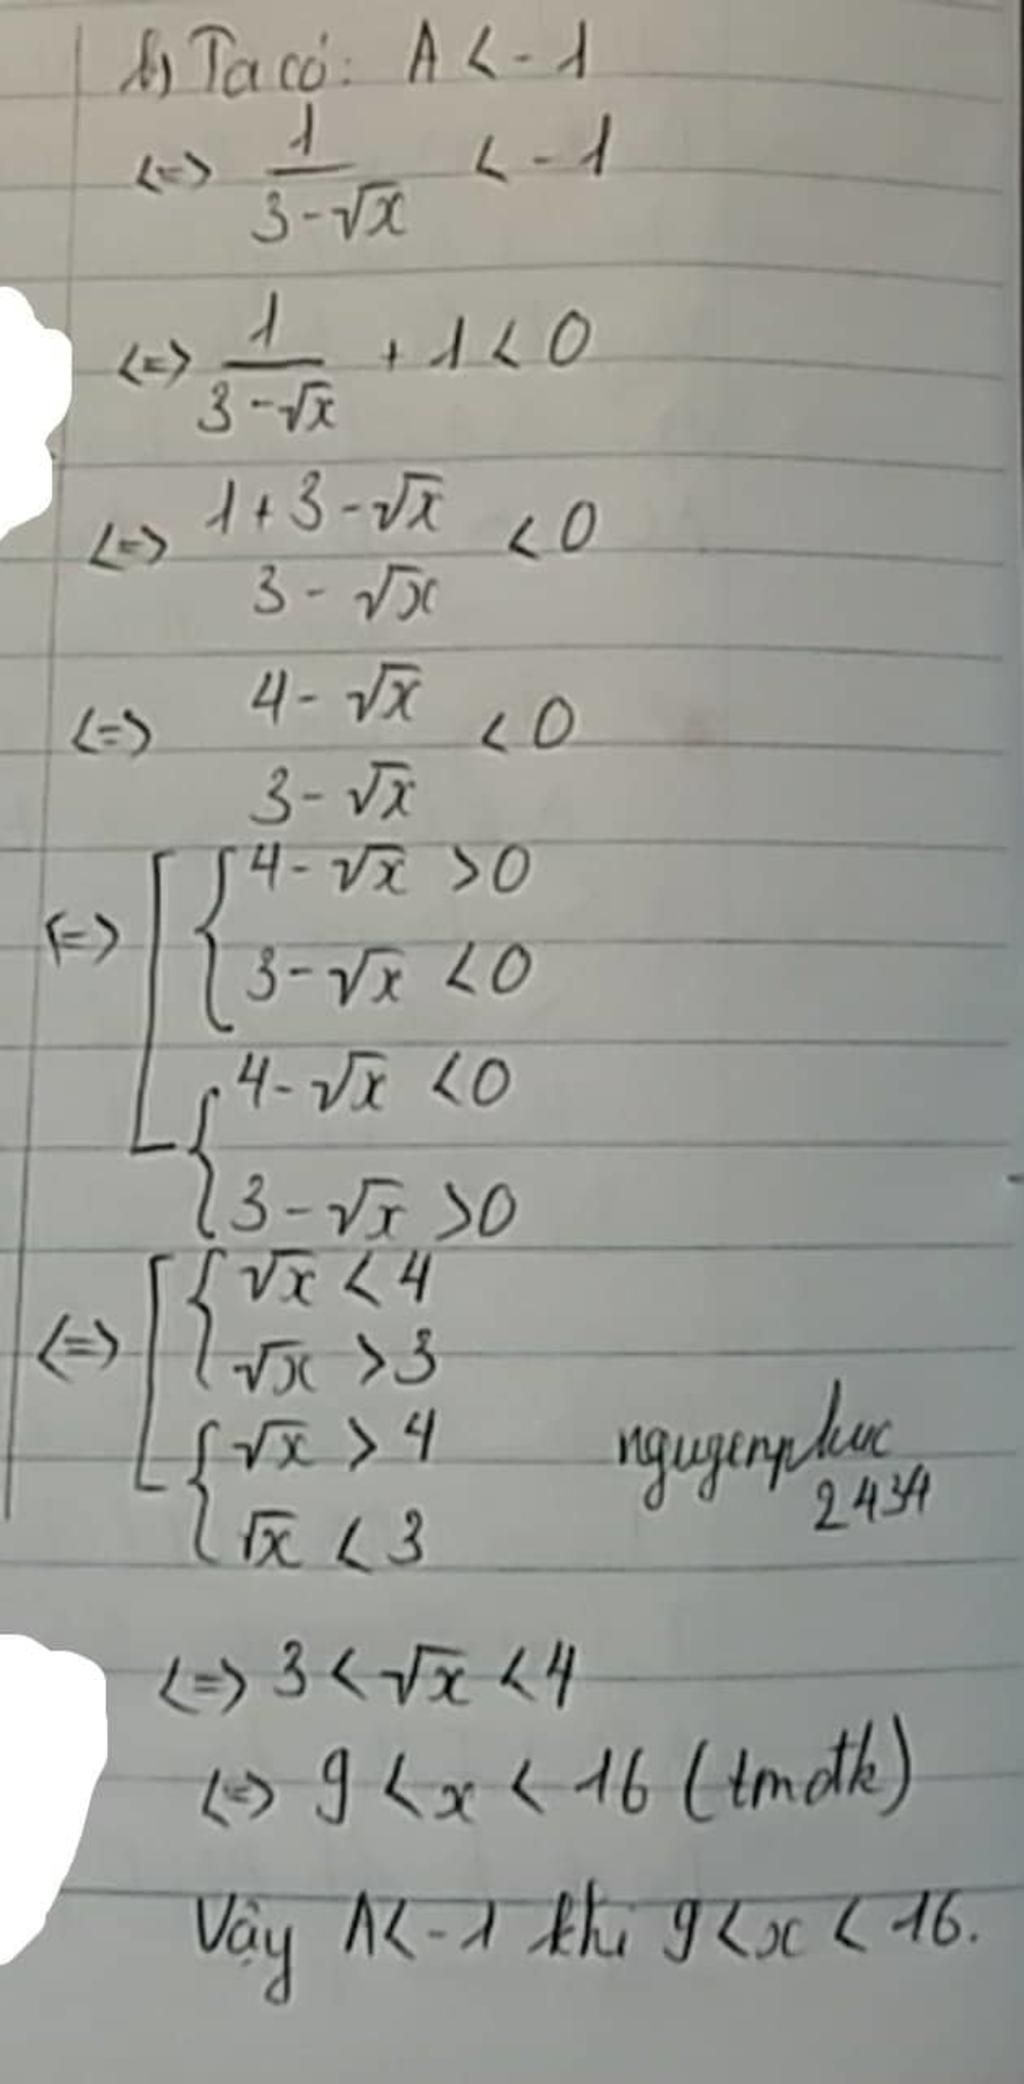 b) Ta có: A < -1
<=> 1/(3-√x) < -1
<=> 1/(3-√x) + 1 < 0
<=> (1+3-√x)/(3-√x) < 0
<=> (4-√x)/(3-√x) < 0
<=> [ { 4-√x > 0
3-√x < 0
{ 4-√x < 0
3-√x > 0
<=> [ { √x < 4
√x > 3
{ √x > 4
√x < 3
nguyenphuc
2434
<=> 3 < √x < 4
<=> 9 < x < 16 (tmđk)
Vậy A < -1 khi 9 < x < 16.